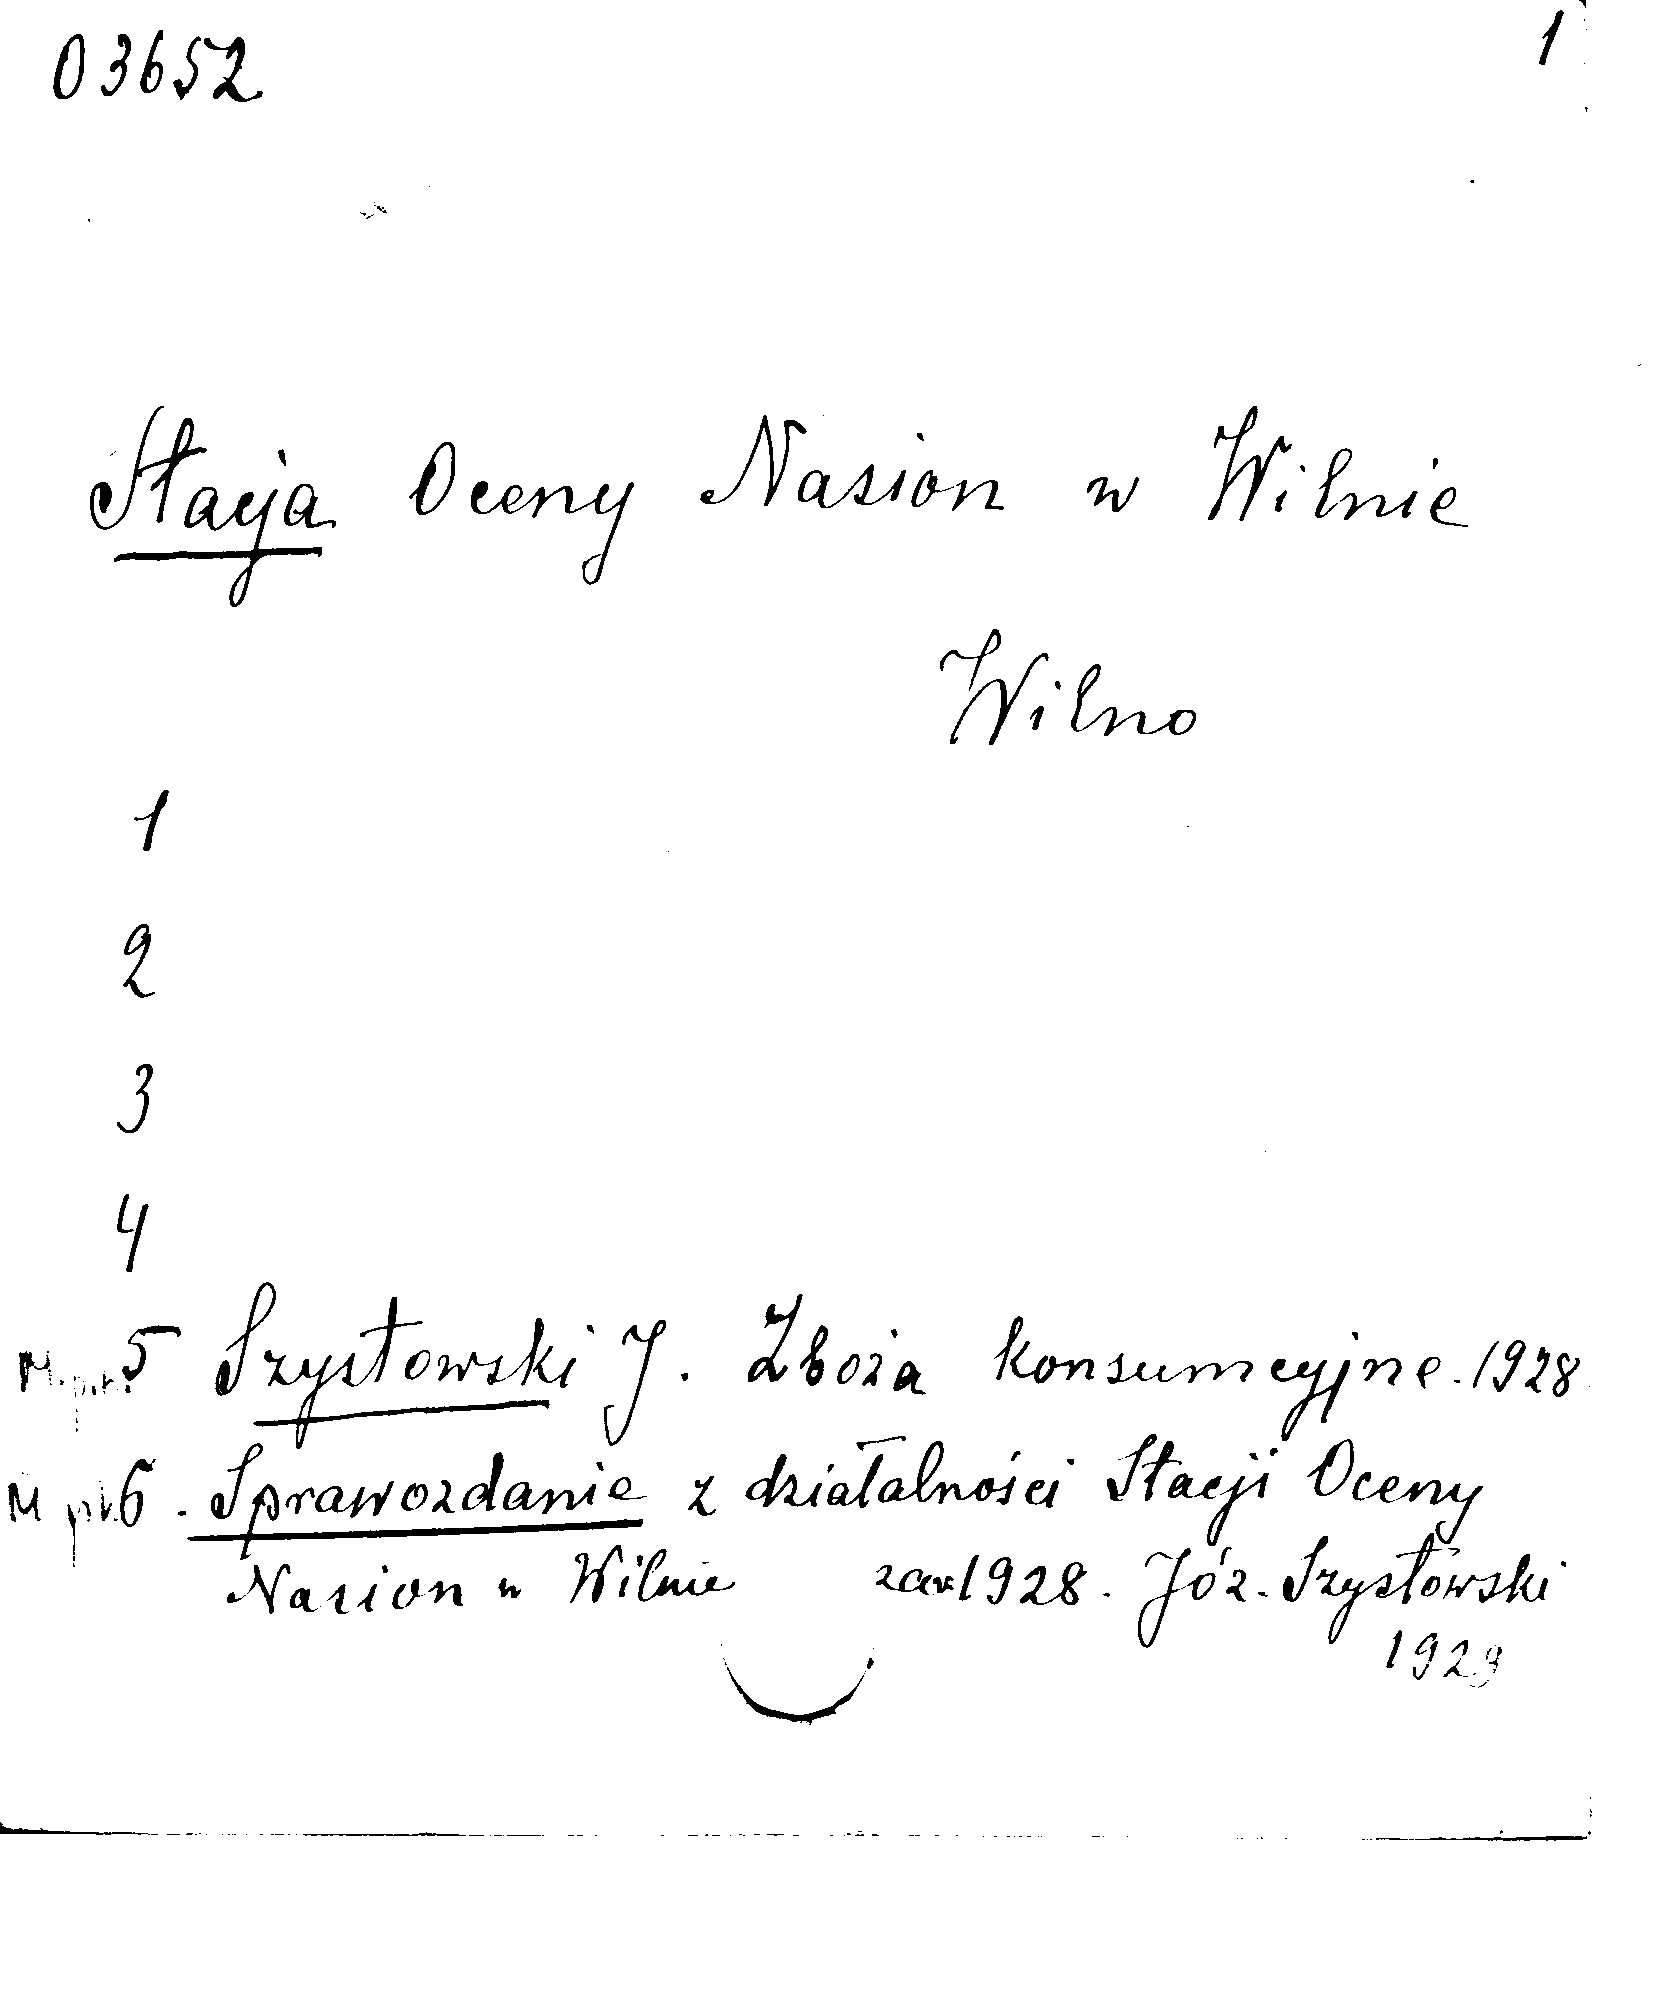 03652 1
Stacja Oceny Nasion w Wilnie
Wilno
1
2
3
4
5 Szystowski J. Zboża konsumcyjne. 1928
6. Sprawozdanie z działalności Stacji Oceny
Nasion w Wilnie za r 1928. Józ. Szystowski
1929